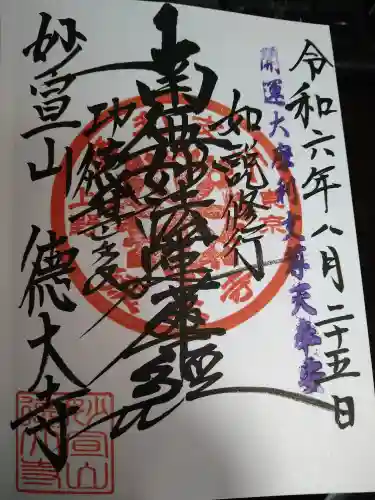 令和六年八月二十五日
開運大摩利支尊天奉安
如説修行
南無妙法蓮華経
功徳甚多
妙宣山 德大寺